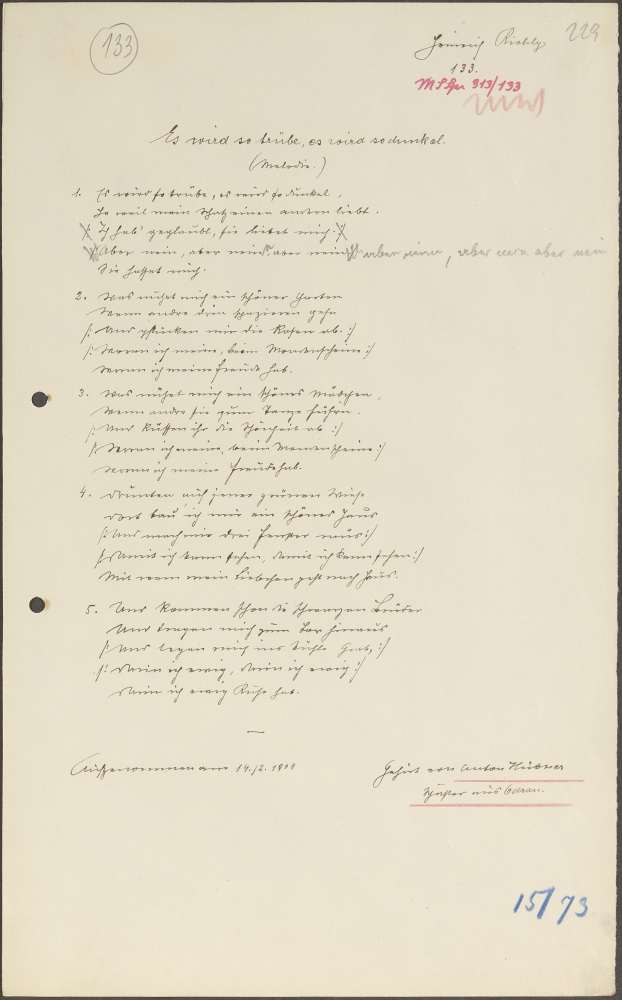 133
229
Heinrich
133.
313/133
Es wird so trübe, es wird so dunkel.
(Melodie.)
1. Es wird so trübe, es wird so dunkel,
So weil mein Schatz einen andern liebt.
/: Ich hab' geglaubt, sie liebet mich :/
/: Aber nein, aber nein, aber nein :/ aber nein, aber nein aber nein
Sie hasset mich.
2. Was nützet mich ein schöner Garten
Wenn andre drin spazieren gehn
/: Und pflücken mir die Rosen ab :/
/: Woran ich meine, beim Mondenscheine :/
Woran ich meine Freude hab.
3. Was nützet mich ein schönes Mädchen,
Wenn andre sie zum Tanze führn.
/: Und küssen ihr die Schönheit ab :/
/: Woran ich meine, beim Mondenscheine :/
Woran ich meine Freude hab.
4. Drunten auf jener grünen Wiese
Dort bau' ich mir ein schönes Haus
/: Und mach mir drei Fenster raus :/
/: Damit ich kann sehen, damit ich kann sehen :/
Mit wem mein Liebchen geht nach Haus.
5. Und kommen schon die schwarzen Brüder
Und tragen mich zum Tor hinaus
/: Und legen mich ins kühle Grab :/
/: Darin ich ewig, darin ich ewig :/
Darin ich ewig Ruhe hab.
Aufgenommen am 14./2.
Gehört von Anton Hübner
aus Odrau.
15/73